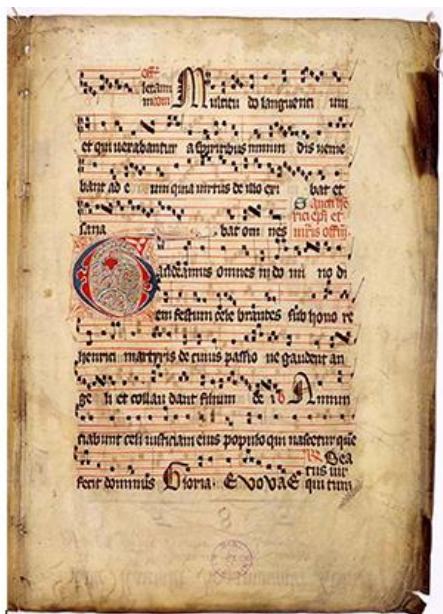 Offerenda
Multitu do languenti um
et qui vexabantur a spiritibus immun dis venie
bant ad e um quia virtus de illo exi bat et
sana bat om nes Sancti hen
rici epi et
mris offm.
Gaudeamus omnes in do mi no di
em festum cele brantes sub hono re
henrici martyris de cuius passio ne gaudent an
ge li et collau dant filium de i Annun
ciabunt celi iusticiam eius populo qui nascetur que
fecit dominus Gloria. EVOVAE Bea
tus vir
qui tim